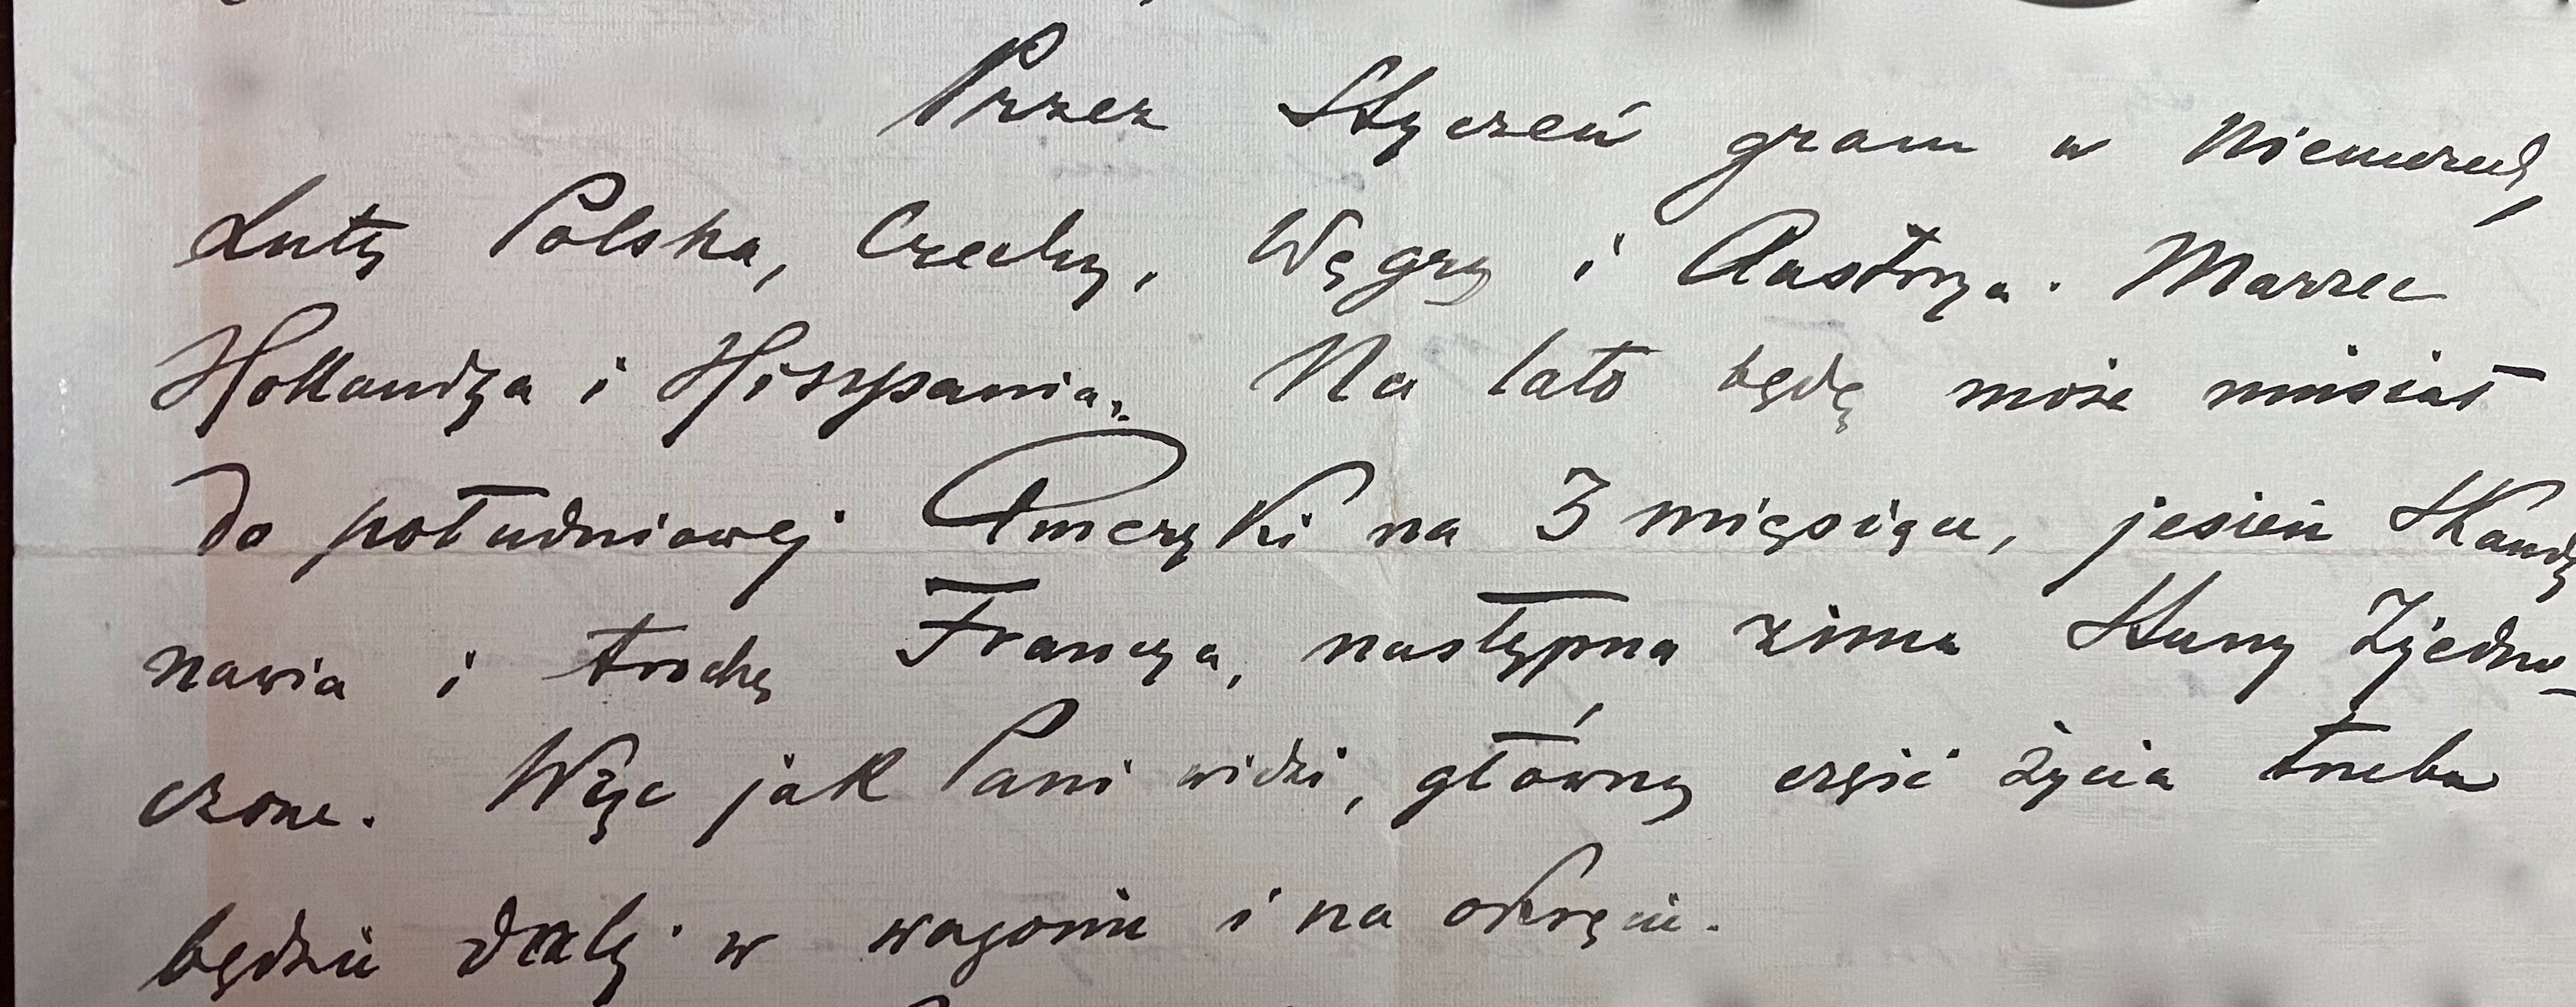 Przez Styczeń gram w Niemczech,
Luty Polska, Czechy, Węgry i Austrya. Marzec
Hollandya i Hiszpania. Na lato będę może musiał
do południowej Ameryki na 3 miesiące, jesień Skandy
nawia i trochę Francya, następna zima Stany Zjedno-
czone. Więc jak Pani widzi, główną część życia trzeba
będzie dalej w wagonie i na okręcie.